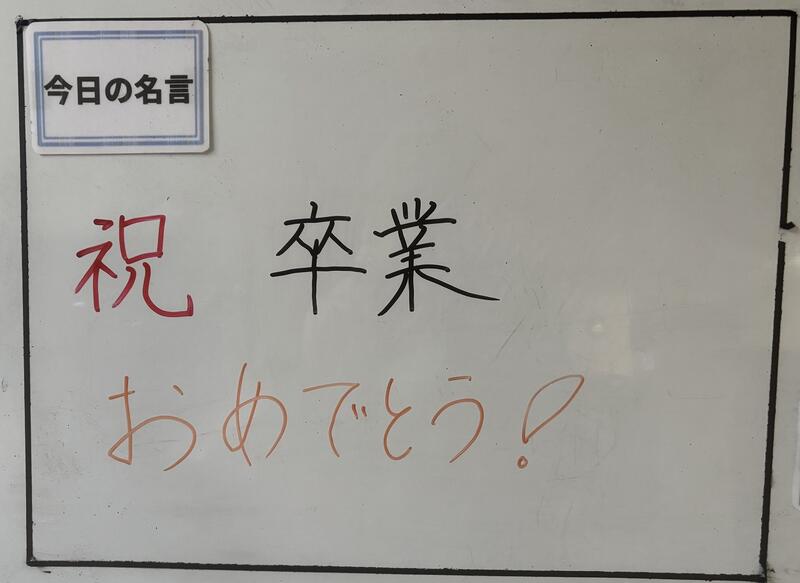 今日の名言
祝 卒業
おめでとう!